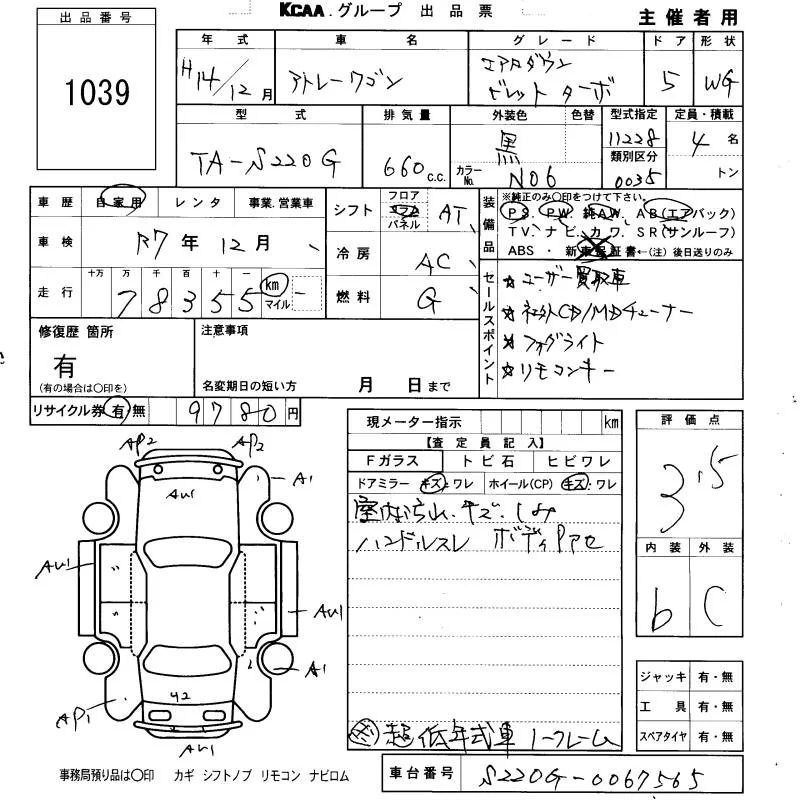 KCAA.グループ 出品票
主催者用
出品番号
1039
年式 車名 グレード ドア 形状
H14/12月 アトレーワゴン エアロダウン ビレット ターボ 5 WG
型式 排気量 外装色 色替 型式指定 定員・積載
TA-S220G 660 c.c. 黒 11228 4名
カラーNo. N06 類別区分 0035 トン
車歴 自家用 レンタ 事業.営業車
車検 R7年12月
走行 十万 万 千 百 十 一
78355 km マイル
シフト フロア コラム パネル AT
冷房 AC
燃料 G
装備品
※純正のみ○印をつけて下さい。
PS. PW. 純AW. AB(エアバック)
TV. ナビ. カワ. SR(サンルーフ)
ABS ・ 新車保証書←(注)後日送りのみ
セールスポイント
☆ユーザー買取車
☆社外CD/MDチューナー
☆フォグライト
☆リモコンキー
修復歴 箇所
有
(有の場合は○印を)
注意事項
名変期日の短い方 月 日まで
リサイクル券 有 無 9780円
現メーター指示 km
【査定員記入】
Fガラス トビ石 ヒビワレ
ドアミラー キズ・ワレ ホイール(CP) キズ・ワレ
室内ヨゴレ、キズ、シミ
ハンドルスレ ボディPアセ
超低年式車 ノークレーム
評価点
3.5
内装 外装
b C
ジャッキ 有・無
工具 有・無
スペアタイヤ 有・無
AP2 AP2
AU1 A1
AU1 AU1
A1
AP1 U2
AU1
事務局預り品は○印 カギ シフトノブ リモコン ナビロム
車台番号 S220G-0067565